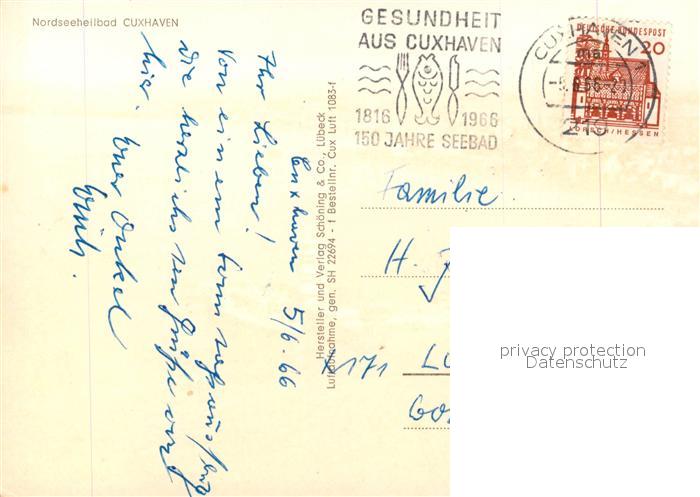 Nordseeheilbad CUXHAVEN
GESUNDHEIT
AUS CUXHAVEN
1816 1966
150 JAHRE SEEBAD
CUXHAVEN
DEUTSCHE BUNDESPOST
20
LORSCH/HESSEN
Cuxhaven 5/6.66
Ihr Lieben!
Von einem
die herzlichsten Grüße von
hier. Euer Onkel
Hersteller und Verlag Schöning & Co., Lübeck
Luftaufnahme, gen. SH 22694 - f Bestellnr. Cux Luft 1083-f
Familie
H.
privacy protection
Datenschutz